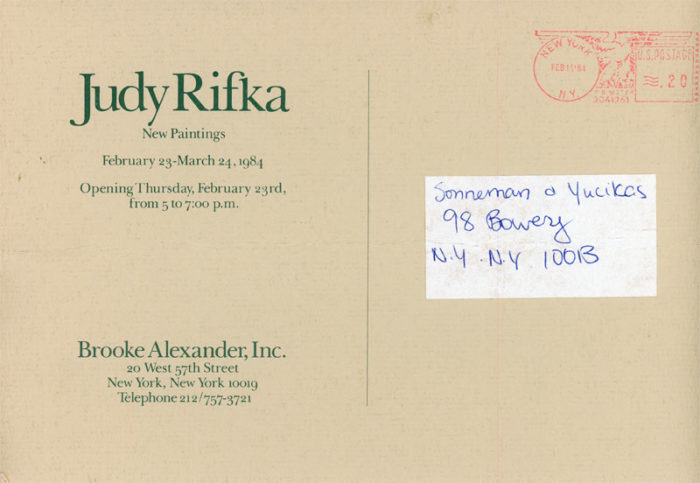 Judy Rifka
New Paintings
February 23-March 24, 1984
Opening Thursday, February 23rd,
from 5 to 7:00 p.m.
Brooke Alexander, Inc.
20 West 57th Street
New York, New York 10019
Telephone 212/757-3721
NEW YORK
FEB
N.Y.
U.S. POSTAGE
.20
Sonneman & Yucikas
98 Bowery
N.Y. N.Y. 10013